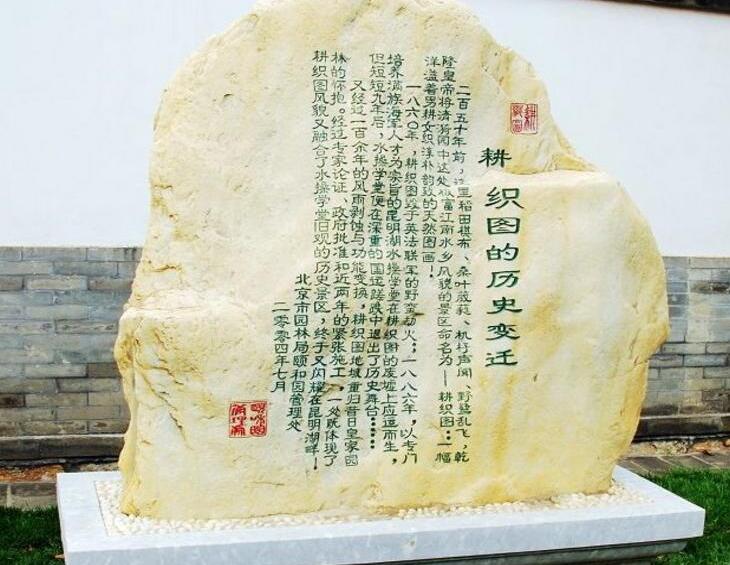 耕织图的历史变迁
二百五十年前，这里稻田棋布、桑叶葳蕤、机杼声闻、野蚕乱飞，乾
隆皇帝将清漪园中这处极富江南水乡风貌的景区命名为——耕织图：一幅
洋溢着男耕女织淳朴韵致的天然图画！
一八六〇年，耕织图毁于英法联军的野蛮劫火；一八八六年，以专门
培养满族海军人才为宗旨的昆明湖水操学堂在耕织图的废墟上应运而生，
但短短九年后，水操学堂便在深重的国运蹉跎中退出了历史舞台……
又经过一百余年的风雨剥蚀与功能变换，耕织图地域重归昔日皇家园
林的怀抱。经过专家论证、政府批准和近两年的紧张施工，一处既体现了
耕织图风貌又融合了水操学堂旧观的历史景区，终于又闪耀在昆明湖畔！
北京市园林局颐和园管理处
二〇〇四年七月